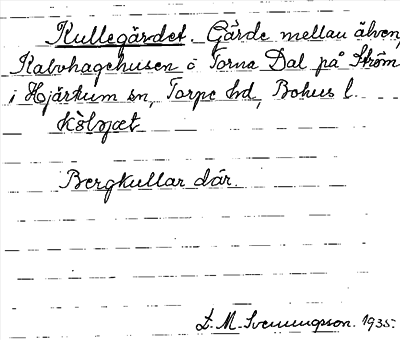 Kullegärdet. Gärde mellan älven,
Kalvhagehusen o Torna Dal på Ström
i Hjärtum sn, Torpe hd, Bohus l.
Bergkullar där.
L. M. Svenungsson. 1935.